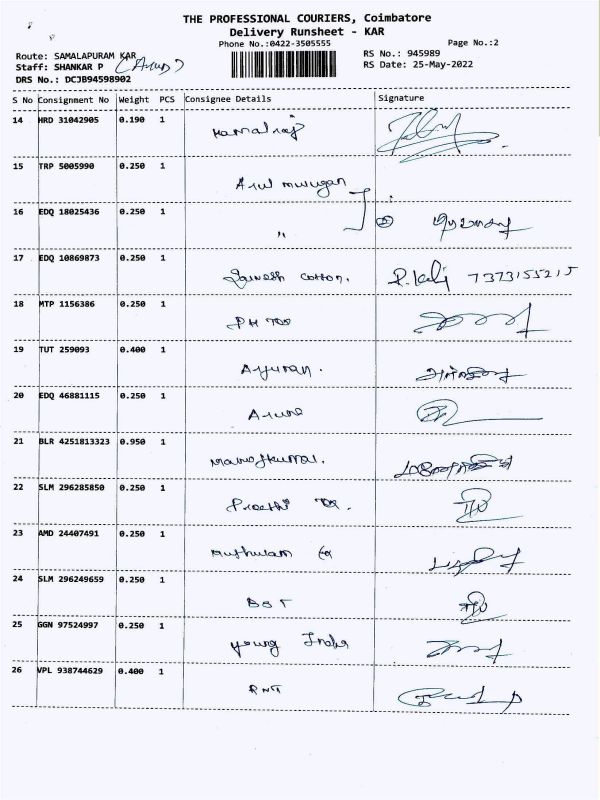 THE PROFESSIONAL COURIERS, Coimbatore
Delivery Runsheet - KAR
Phone No.:0422-3505555
Page No.:2
Route: SAMALAPURAM KAR
RS No.: 945989
Staff: SHANKAR P (Arun)
RS Date: 25-May-2022
DRS No.: DCJB94598902
S No Consignment No Weight PCS Consignee Details Signature
14 HRD 31042905 0.190 1 Kamalraj
15 TRP 5005990 0.250 1 Arul murugan
16 EDQ 18025436 0.250 1 "
17 EDQ 10869873 0.250 1 Ganesh cotton. 7373155215
18 MTP 1156386 0.250 1 PH Tex
19 TUT 259093 0.400 1 Ayyuran.
20 EDQ 46881115 0.250 1
21 BLR 4251813323 0.950 1 Manojkumar.
22 SLM 296285850 0.250 1 Preethi Tex.
23 AMD 24407491 0.250 1
24 SLM 296249659 0.250 1 BST
25 GGN 97524997 0.250 1 young India
26 VPL 938744629 0.400 1 RNT